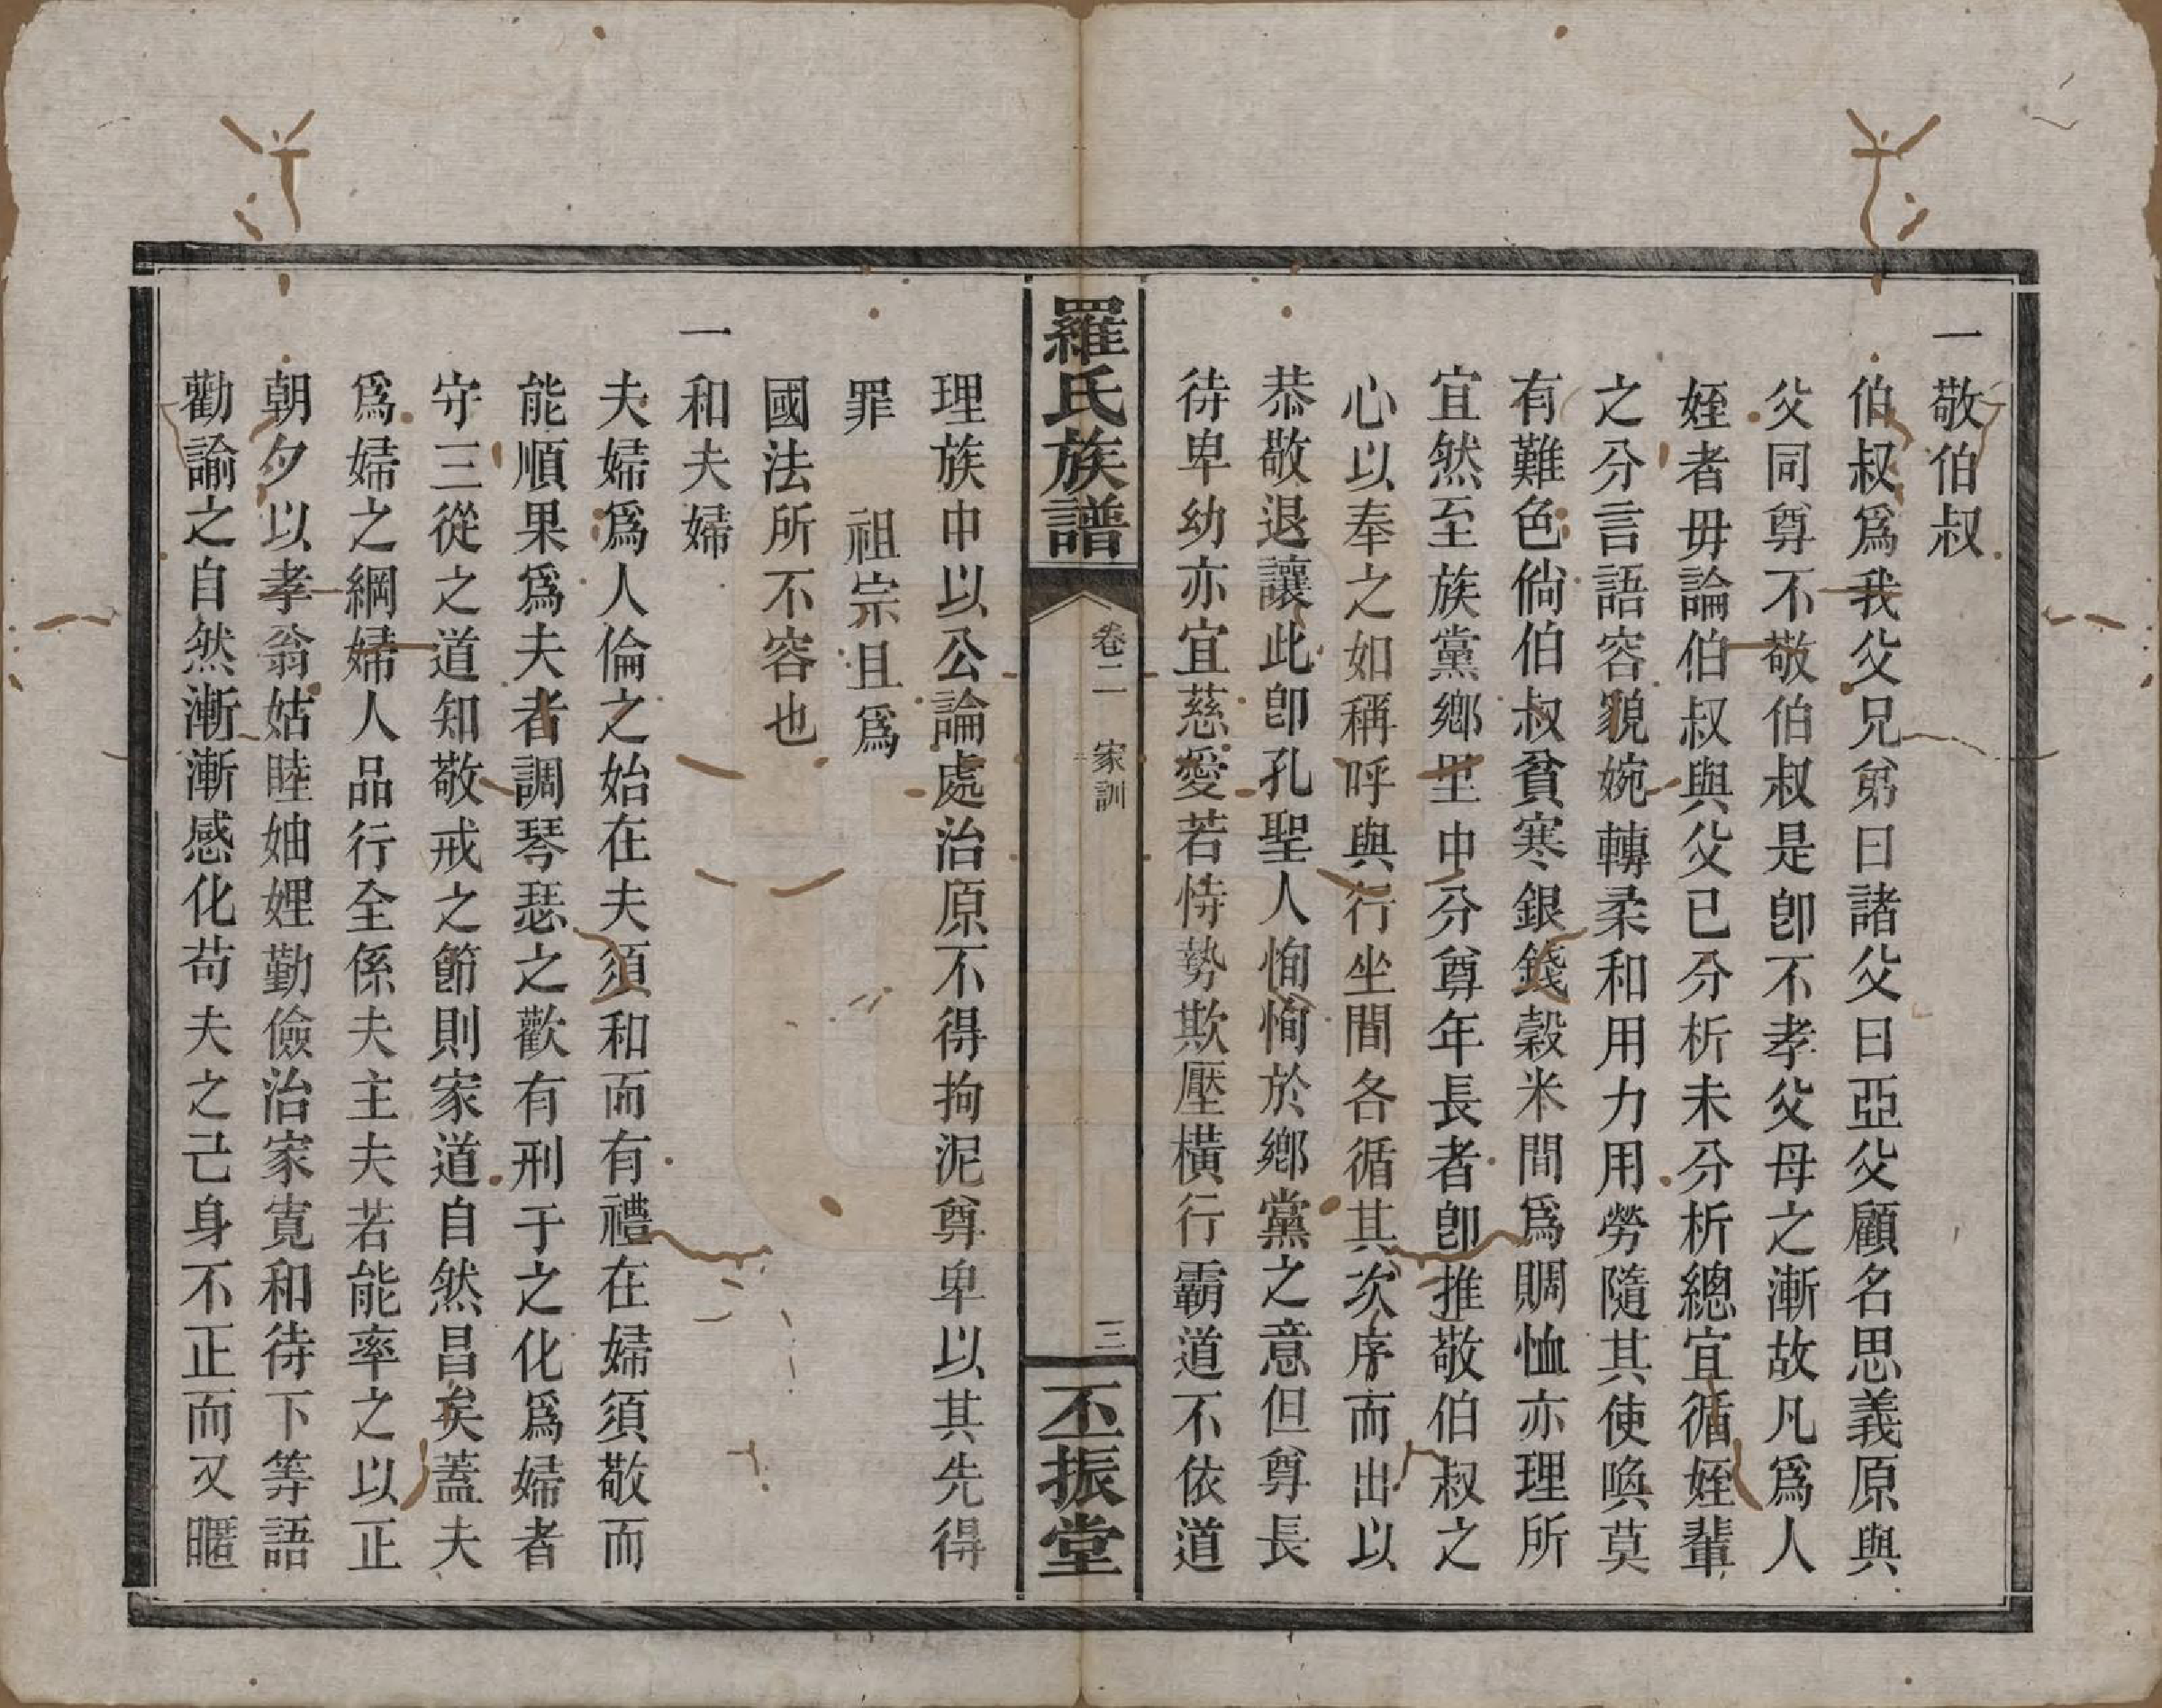 一敬伯叔
伯叔爲我父兄弟曰諸父曰亞父顧名思義原與
父同尊不敬伯叔是卽不孝父母之漸故凡爲人
姪者毋論伯叔與父已分析未分析總宜循姪輩
之分言語容貌婉轉柔和用力用勞隨其使喚莫
有難色倘伯叔貧寒銀錢穀米間爲賙恤亦理所
宜然至族黨鄉里中分尊年長者卽推敬伯叔之
心以奉之如稱呼與行坐間各循其次序而出以
恭敬退讓此卽孔聖人恂恂於鄉黨之意但尊長
待卑幼亦宜慈愛若恃勢欺壓橫行霸道不依道
羅氏族譜
卷二 家訓
三
丕振堂
理族中以公論處治原不得拘泥尊卑以其先得
罪 祖宗且爲
國法所不容也
一和夫婦
夫婦爲人倫之始在夫須和而有禮在婦須敬而
能順果爲夫者調琴瑟之歡有刑于之化爲婦者
守三從之道知敬戒之節則家道自然昌矣蓋夫
爲婦之綱婦人品行全係夫主夫若能率之以正
朝夕以孝翁姑睦妯娌勤儉治家寬和待下等語
勸諭之自然漸漸感化苟夫之己身不正而又暱